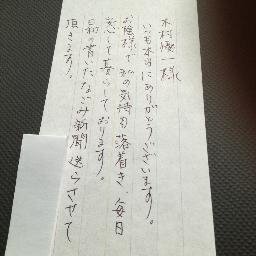 木村優一様
いつも本当にありがとうございます。
お陰様で私の気持も落着き、毎日
安心して暮らしております。
日和の書いたなごみ新聞送らさせて
頂きます。